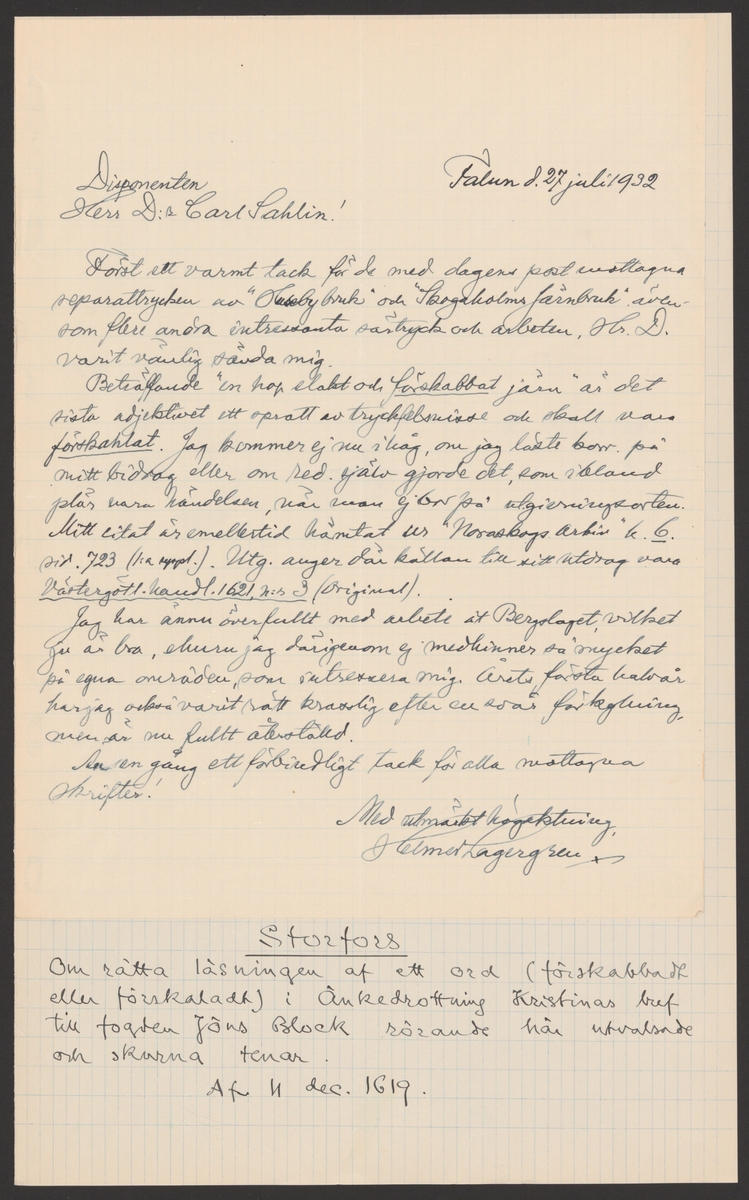 Falun d. 27 juli 1932
Disponenten
Herr D:r Carl Sahlin!
Först ett varmt tack för de med dagens post mottagna
separattrycken av "Husbybruk" och "Skogaholms järnbruk" även-
som flere andra intressanta särtryck och arbeten, Hr. D.
varit vänlig sända mig.
Beträffande "en hop elakt och förskabbat järn" är det
sista adjektivet ett spratt av tryckfelsnisse och skall vara
förskahlat. Jag kommer ej nu ihåg, om jag läste korr. på
mitt bidrag eller om red. själv gjorde det, som ibland
plär vara händelsen, när man ej bor på utgivningsorten.
Mitt citat är emellertid hämtat ur "Noraskogs arkiv" h. 6.
sid. 723 (1:a uppl.). Utg. anger där källan till sitt utdrag vara
Västergötl. handl. 1621, n:r 3 (original).
Jag har ännu överfullt med arbete åt Bergslaget, vilket
ju är bra, ehuru jag därigenom ej medhinner så mycket
på egna områden, som intressera mig. Årets första halvår
har jag också varit rätt krasslig efter en svår förkylning,
men är nu fullt återställd.
Än en gång ett förbindligt tack för alla mottagna
skrifter!
Med utmärkt högaktning,
Helmer Lagergren
Storfors
Om rätta läsningen af ett ord (förskabbadt
eller förskaladt) i Änkedrottning Kristinas bref
till fogden Jöns Block rörande här utvalsade
och skurna tenar.
Af 11 dec. 1619.